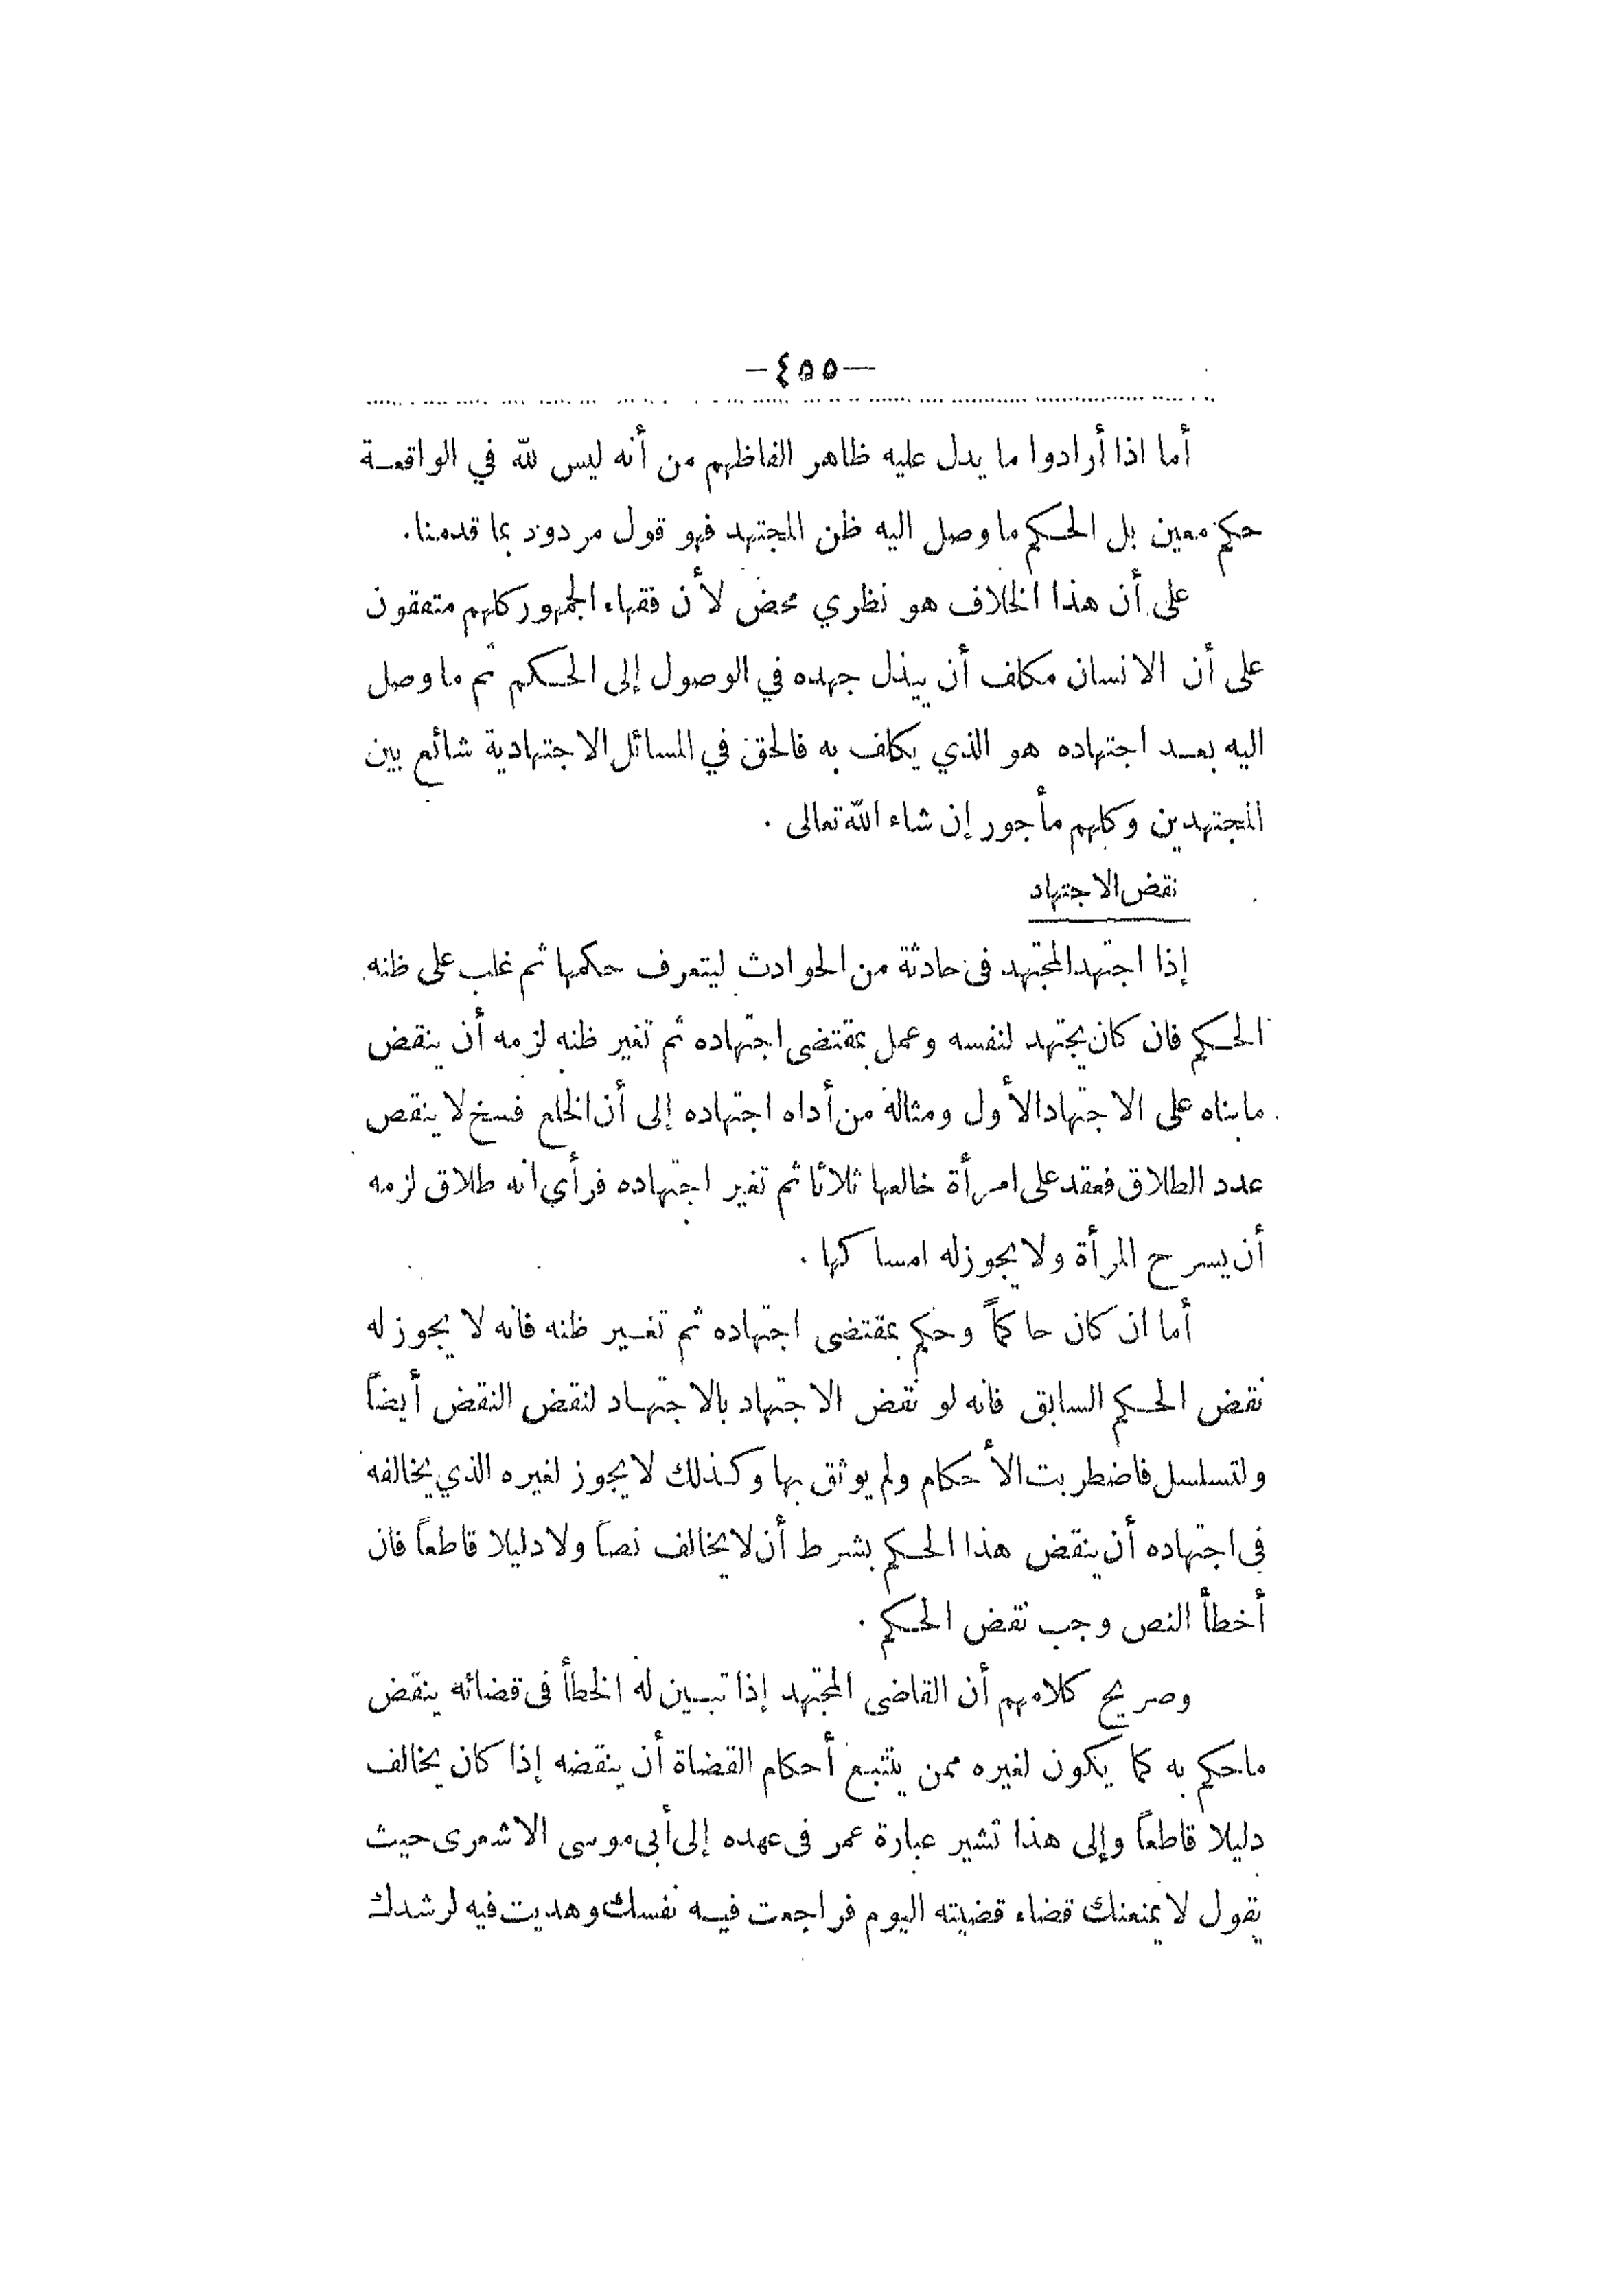 —٤٥٥—
أما اذا أرادوا ما يدل عليه ظاهر الفاظهم من أنه ليس لله في الواقعة
حكم معين بل الحكم ما وصل اليه ظن المجتهد فهو قول مردود بما قدمنا.
على أن هذا الخلاف هو نظري محض لأن فقهاء الجمهور كلهم متفقون
على أن الانسان مكلف أن يبذل جهده في الوصول إلى الحكم ثم ما وصل
اليه بعد اجتهاده هو الذي يكلف به فالحق في المسائل الاجتهادية شائع بين
المجتهدين وكلهم مأجور إن شاء الله تعالى .
نقض الاجتهاد
إذا اجتهد المجتهد فى حادثة من الحوادث ليتعرف حكمها ثم غلب على ظنه
الحكم فان كان يجتهد لنفسه وعمل بمقتضى اجتهاده ثم تغير ظنه لزمه أن ينقض
ما بناه على الاجتهاد الأول ومثاله من أداه اجتهاده إلى أن الخلع فسخ لا ينقص
عدد الطلاق فعقد على امرأة خالعها ثلاثا ثم تغير اجتهاده فرأي انه طلاق لزمه
أن يسرح المرأة ولا يجوز له امساكها .
أما ان كان حاكماً وحكم بمقتضى اجتهاده ثم تغير ظنه فانه لا يجوز له
نقض الحكم السابق فانه لو نقض الاجتهاد بالاجتهاد لنقض النقض أيضاً
ولتسلسل فاضطربت الأحكام ولم يوثق بها وكذلك لا يجوز لغيره الذي يخالفه
فى اجتهاده أن ينقض هذا الحكم بشرط أن لا يخالف نصاً ولا دليلا قاطعاً فان
أخطأ النص وجب نقض الحكم .
وصريح كلامهم أن القاضى المجتهد إذا تبين له الخطأ فى قضائه ينقض
ما حكم به كما يكون لغيره ممن يتتبع أحكام القضاة أن ينقضه إذا كان يخالف
دليلا قاطعاً وإلى هذا تشير عبارة عمر فى عهده إلى أبى موسى الاشعرى حيث
يقول لا يمنعنك قضاء قضيته اليوم فراجعت فيه نفسك وهديت فيه لرشدك